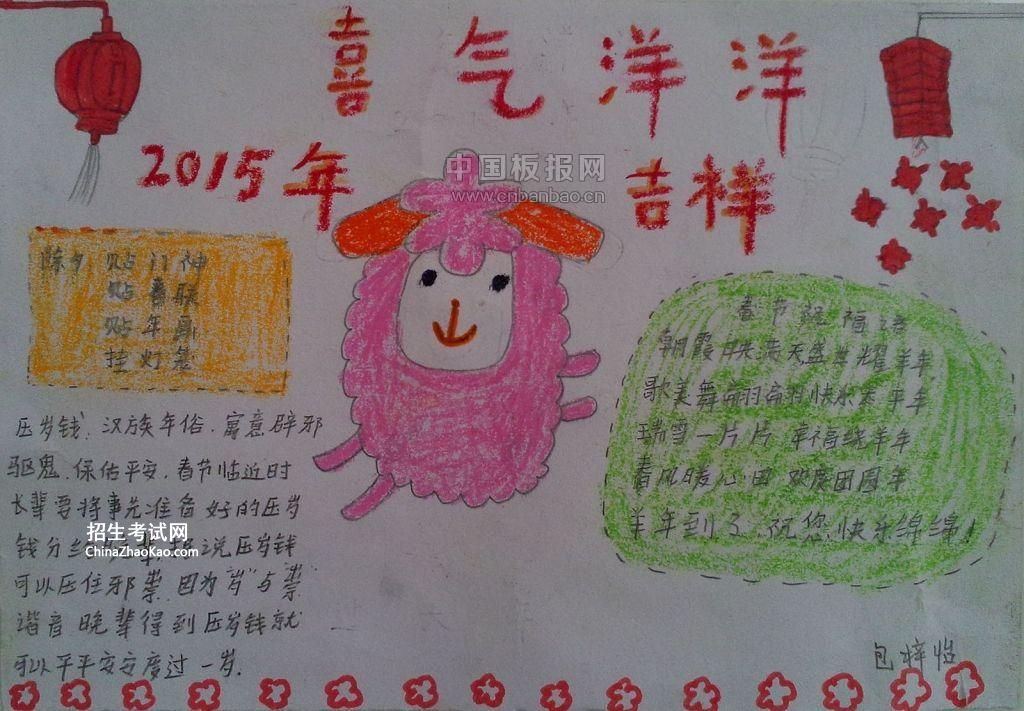 喜气洋洋
2015年 吉祥
中国板报网
www.cnbanbao.cn
除夕 贴门神
贴春联
贴年画
挂灯笼
压岁钱,汉族年俗,寓意辟邪
驱鬼,保佑平安,春节临近时
长辈要将事先准备好的压岁
钱分给 辈,据说压岁钱
招生考试网
ChinaZhaoKao.com
可以压住邪祟,因为"岁"与"祟"
谐音,晚辈得到压岁钱就
可以平平安安度过一岁.
春节祝福语
朝霞映满天盛世耀羊年
歌美舞翩翩 快乐 平年
瑞雪一片片 幸福绕羊年
春风暖心田 欢度团圆年
羊年到了,祝您快乐绵绵!
包梓怡